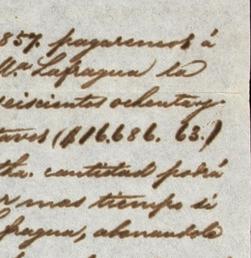 857. pagaremos á
Ma. Lafragua la
seiscientos ochentay
taves ($16.686. 63.)
cha. cantidad podrá
r mas tiempo si
fragua, abonandole